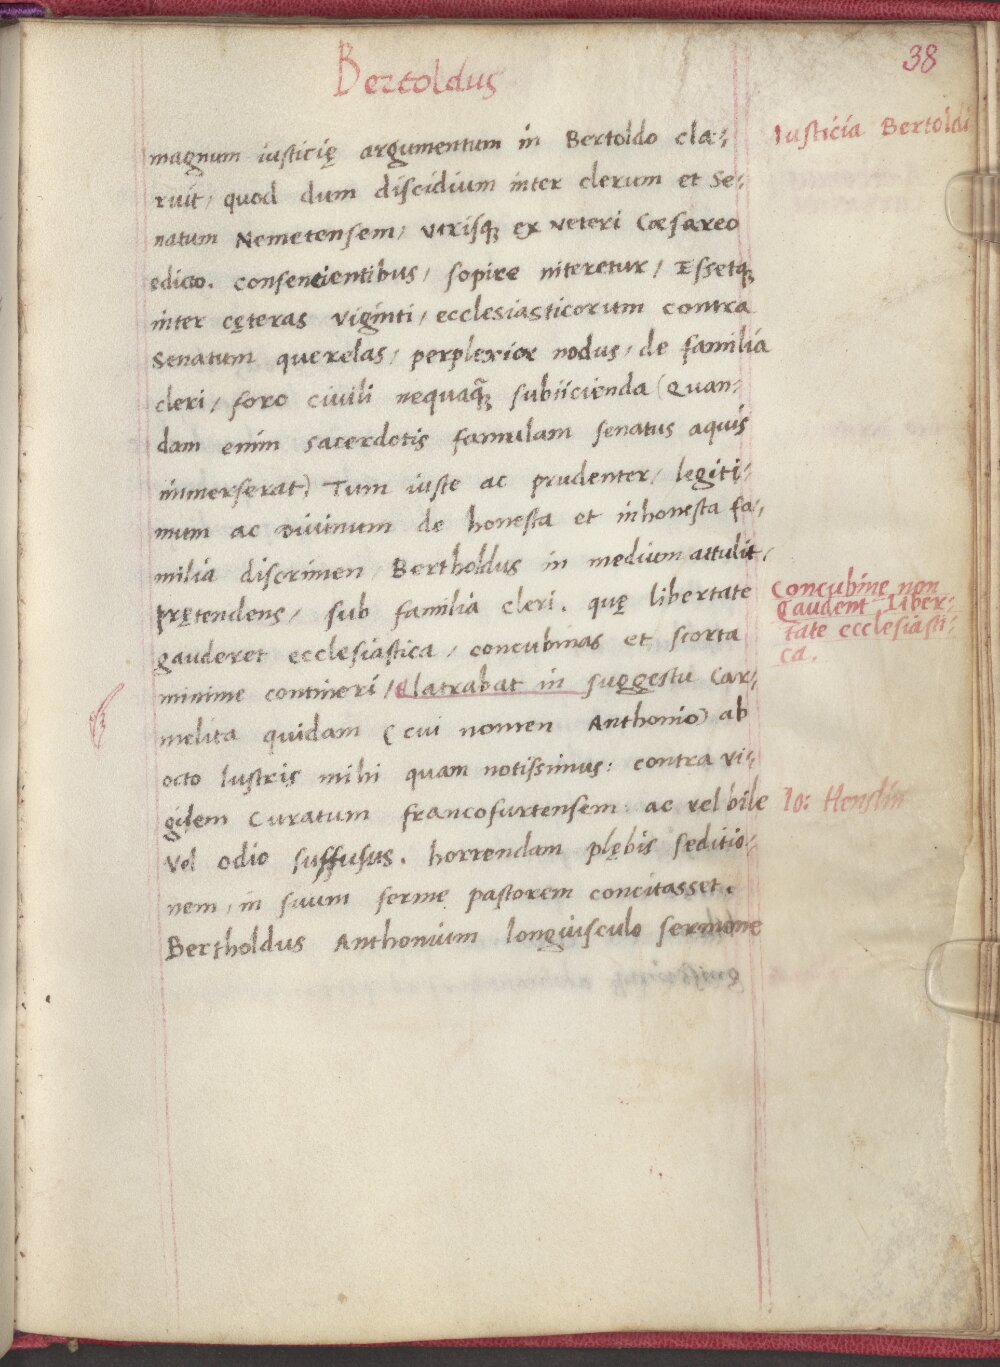 Bertoldus
38
magnum iusticię argumentum in Bertoldo cla⸗
Iusticia Bertoldi
ruit, quod dum discidium inter clerum et Se⸗
natum Nemetensem, vtrisqꝫ ex veteri Cæsareo
edicto. consentientibus, sopire niteretur, Essetqꝫ
inter cęteras viginti, ecclesiasticorum contra
Senatum querelas, perplexior nodus, de familia
cleri, foro ciuili nequaqꝫ̃ subiicienda (Quan⸗
dam enim sacerdotis famulam senatus aquis
immerserat) Tum iuste ac prudenter, legiti⸗
mum ac Diuinum de honesta et inhonesta fa⸗
milia discrimen, Bertholdus in medium attulit,
prętendens, sub familia cleri. quę libertate
Concubinę non
Gaudent Liber⸗
tate ecclesiasti⸗
ca.
gauderet ecclesiastica, concubinas et scorta
minime contineri, Clatrabat in suggestu Car⸗
melita quidam (cui nomen Anthonio) ab
octo lustris mihi quam notissimus: contra vi⸗
gilem Curatum francofurtensem ac vel bile
Io: Henslin
Vel odio suffusus. horrendam plębis seditio⸗
nem, in suum ferme pastorem concitasset.
Bertholdus Anthonium longiusculo sermone